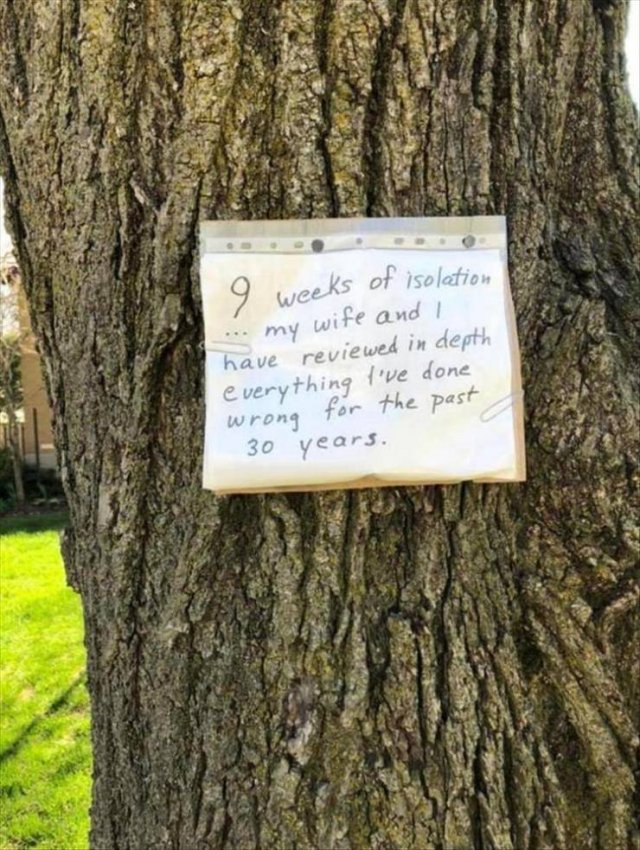 9 weeks of isolation
... my wife and I
have reviewed in depth
everything I've done
wrong for the past
30 years.